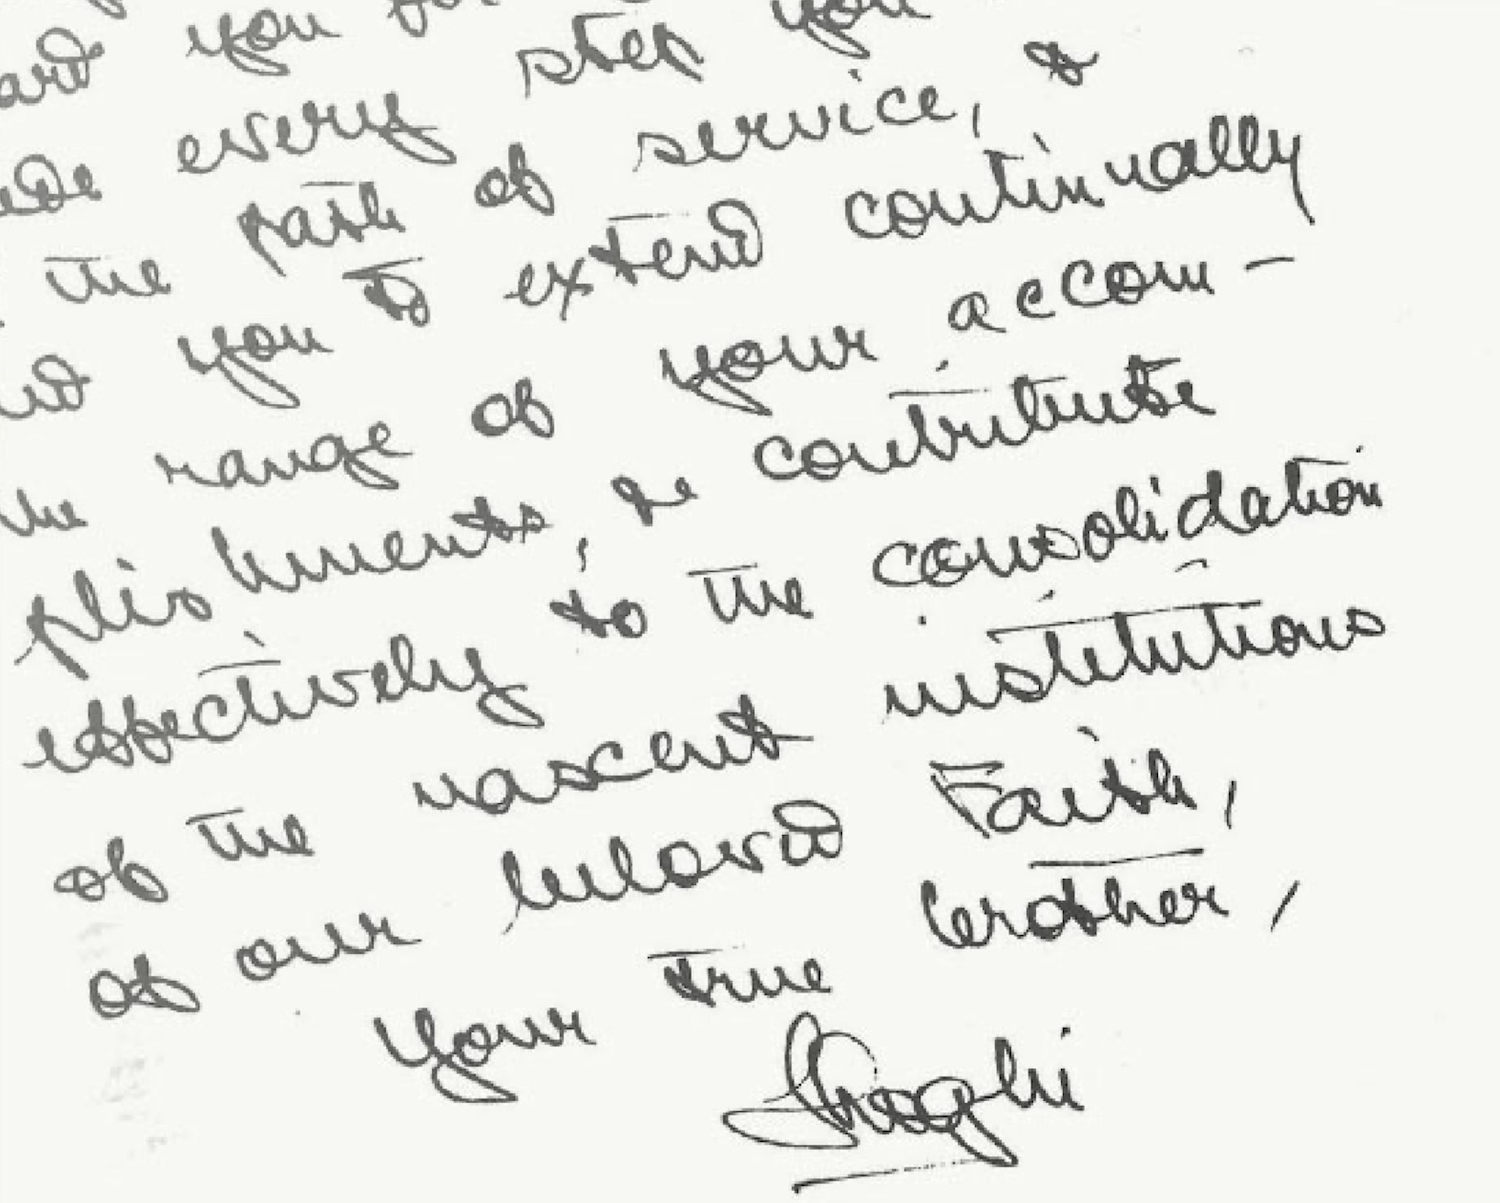 you
every step you
the path of service, &
you to extend continually
range of your accom-
plishments, & contribute
effectively to the consolidation
of the nascent institutions
of our beloved Faith,
Your true brother,
Shoghi